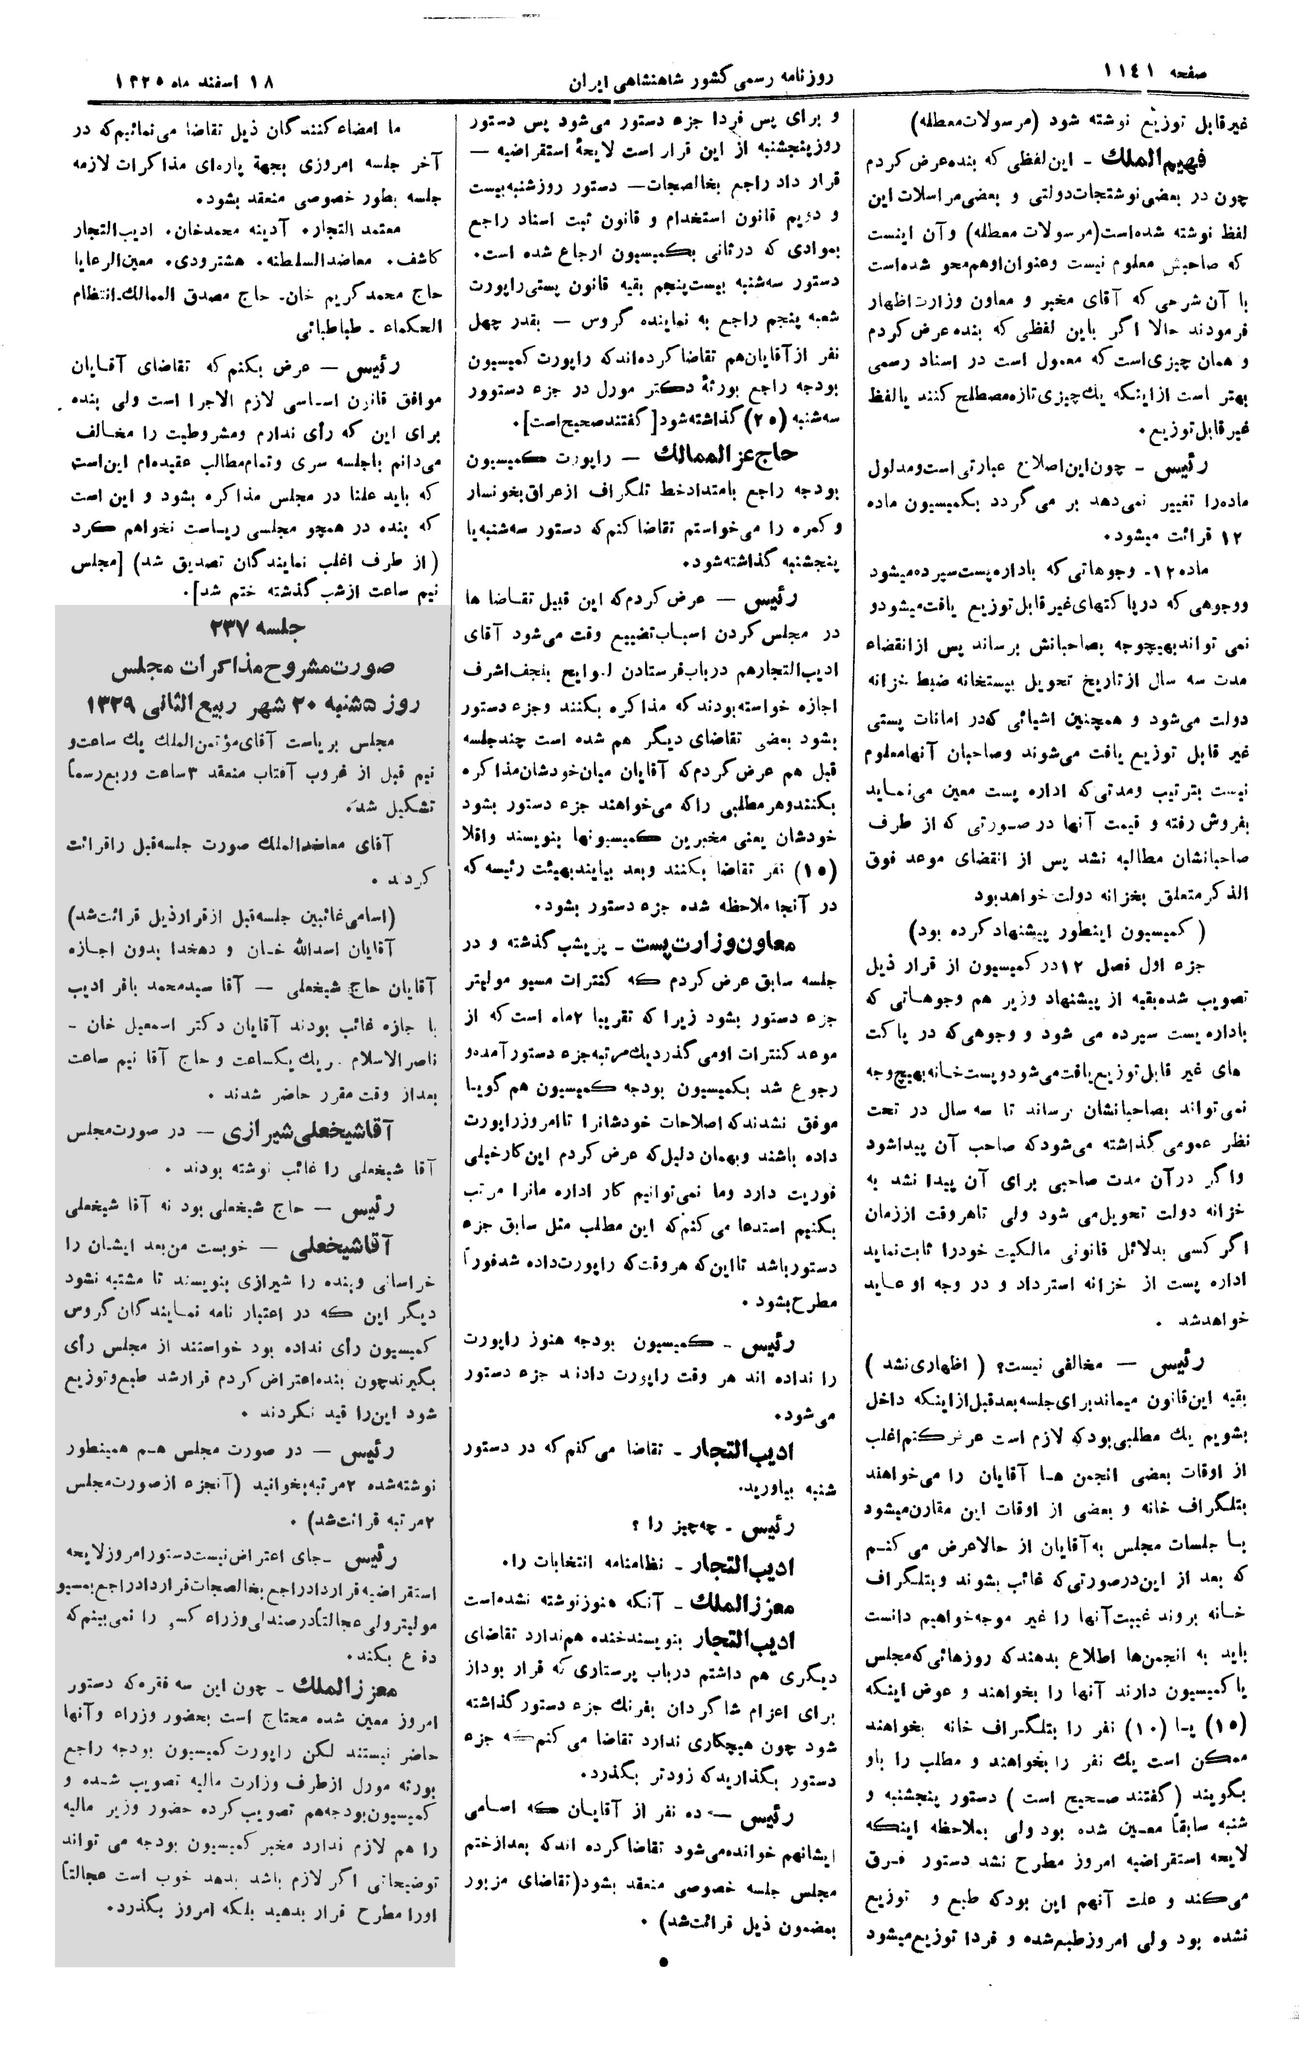 صفحه ۱۱۴۱
روزنامه رسمی کشور شاهنشاهی ایران
۱۸ اسفند ماه ۱۳۲۵
غیرقابل توزیع نوشته شود (مرسولات معطله)
فهیم‌الملک - این لفظی که بنده عرض کردم
چون در بعضی نوشتجات دولتی و بعضی مراسلات این
لفظ نوشته شده است (مرسولات معطله) و آن اینست
که صاحبش معلوم نیست و عنوان او هم محو شده است
با آن شرحی که آقای مخبر و معاون وزارت اظهار
فرمودند حالا اگر باین لفظی که بنده عرض کردم
و همان چیزی است که معمول است در اسناد رسمی
بهتر است از اینکه یك چیزی تازه مصطلح کنند یا لفظ
غیرقابل توزیع.
رئیس - چون این اصلاح عبارتی است و مدلول
ماده را تغییر نمی‌دهد بر می گردد بکمیسیون ماده
۱۲ قرائت میشود.
ماده ۱۲- وجوهاتی که باداره پست سپرده میشود
و وجوهی که در پاکتهای غیر قابل توزیع یافت میشود و
نمی تواند بهیچوجه بصاحبانش برساند پس از انقضاء
مدت سه سال از تاریخ تحویل بپستخانه ضبط خزانه
دولت می‌شود و همچنین اشیائی که در امانات پستی
غیر قابل توزیع یافت می‌شوند و صاحبان آنها معلوم
نیست بترتیب و مدتی که اداره پست معین می‌نماید
بفروش رفته و قیمت آنها در صورتی که از طرف
صاحبانشان مطالبه نشد پس از انقضای موعد فوق
الذکر متعلق بخزانه دولت خواهد بود
(کمیسیون اینطور پیشنهاد کرده بود)
جزء اول فصل ۱۲ در کمیسیون از قرار ذیل
تصویب شده بقیه از پیشنهاد وزیر هم وجوهاتی که
باداره پست سپرده می شود و وجوهی که در پاکت
های غیر قابل توزیع یافت می‌شود و پست خانه بهیچ وجه
نمی‌تواند بصاحبانشان برساند تا سه سال در تحت
نظر عمومی گذاشته می‌شود که صاحب آن پیدا شود
و اگر در آن مدت صاحبی برای آن پیدا نشد به
خزانه دولت تحویل می شود ولی تا هر وقت از زمان
اگر کسی بدلائل قانونی مالکیت خود را ثابت نماید
اداره پست از خزانه استرداد و در وجه او عاید
خواهد شد .
رئیس — مخالفی نیست؟ (اظهاری نشد)
بقیه این قانون میماند برای جلسه بعد قبل از اینکه داخل
بشویم یك مطلبی بود که لازم است عرض کنم اغلب
از اوقات بعضی انجمن ها آقایان را می‌خواهند
بتلگراف خانه و بعضی از اوقات این مقارن میشود
با جلسات مجلس به آقایان از حالا عرض می کنم
که بعد از این در صورتی که غائب بشوند و بتلگراف
خانه بروند غیبت آنها را غیر موجه خواهیم دانست
باید به انجمن‌ها اطلاع بدهند که روزهائی که مجلس
یا کمیسیون دارند آنها را بخواهند و عوض اینکه
(۱۵) یا (۱۰) نفر را بتلگراف خانه بخواهند
ممکن است یك نفر را بخواهند و مطلب را باو
بگویند (گفتند صحیح است) دستور پنجشنبه و
شنبه سابقاً معین شده بود ولی بملاحظه اینکه
لایحه استقراضیه امروز مطرح نشد دستور فرق
می‌کند و علت آنهم این بود که طبع و توزیع
نشده بود ولی امروز طبع شده و فردا توزیع میشود
و برای پس فردا جزء دستور می‌شود پس دستور
روز پنجشنبه از این قرار است لایحهٔ استقراضیه —
قرار داد راجع بخالصجات — دستور روز شنبه بیست
و دویم قانون استخدام و قانون ثبت اسناد راجع
بموادی که در ثانی بکمیسیون ارجاع شده است.
دستور سه‌شنبه بیست پنجم بقیه قانون پستی راپورت
شعبه پنجم راجع به نماینده گروس — بقدر چهل
نفر از آقایان هم تقاضا کرده‌اند که راپورت کمیسیون
بودجه راجع بورثهٔ دکتر مورل در جزء دستوور
سه‌شنبه (۲۵) گذاشته شود [گفتند صحیح است].
حاج عز الممالک — راپورت کمیسیون
بودجه راجع بامتداد خط تلگراف از عراق بخونسار
و کمره را می‌خواستم تقاضا کنم که دستور سه‌شنبه یا
پنجشنبه گذاشته شود.
رئیس — عرض کردم که این قبیل تقاضا ها
در مجلس کردن اسباب تضییع وقت می‌شود آقای
ادیب‌التجار هم در باب فرستادن لوایح بنجف اشرف
اجازه خواسته بودند که مذاکره بکنند و جزء دستور
بشود بعضی تقاضای دیگر هم شده است چند جلسه
قبل هم عرض کردم که آقایان میان خودشان مذاکره
بکنند و هر مطلبی را که می‌خواهند جزء دستور بشود
خودشان یعنی مخبرین کمیسیونها بنویسند و اقلا
(۱۵) نفر تقاضا بکنند و بعد بیایند بهیئت رئیسه که
در آنجا ملاحظه شده جزء دستور بشود.
معاون وزارت پست - پریشب گذشته و در
جلسه سابق عرض کردم که کنترات مسیو مولیتر
جزء دستور بشود زیرا که تقریبا ۲ ماه است که از
موعد کنترات او می گذرد یك مرتبه جزء دستور آمده و
رجوع شد بکمیسیون بودجه کمیسیون هم گویا
موفق نشدند که اصلاحات خودشان را تا امروز راپورت
داده باشند و بهمان دلیل که عرض کردم این کار خیلی
فوریت دارد و ما نمی‌توانیم کار اداره مانرا مرتب
بکنیم استدعا می کنم که این مطلب مثل سابق جزء
دستور باشد تا این که هر وقت که راپورت داده شد فوراً
مطرح بشود .
رئیس - کمیسیون بودجه هنوز راپورت
را نداده اند هر وقت راپورت دادند جزء دستور
می شود.
ادیب‌التجار - تقاضا می کنم که در دستور
شنبه بیاورید.
رئیس - چه چیز را ؟
ادیب‌التجار - نظامنامه انتخابات را.
معزز الملک - آنکه هنوز نوشته نشده است
ادیب‌التجار بنویسند خنده هم ندارد تقاضای
دیگری هم داشتم در باب پرستاری که قرار بود از
برای اعزام شاگردان بفرنك جزء دستور گذاشته
شود چون هیچکاری ندارد تقاضا می کنم که جزء
دستور بگذارید که زودتر بگذرد.
رئیس — ده نفر از آقایان که اسامی
ایشانهم خوانده می‌شود تقاضا کرده اند که بعد از ختم
مجلس جلسه خصوصی منعقد بشود (تقاضای مزبور
بمضمون ذیل قرائت شد) .
ما امضاء کنندگان ذیل تقاضا می‌نمائیم که در
آخر جلسه امروزی بجهة پاره‌ای مذاکرات لازمه
جلسه بطور خصوصی منعقد بشود.
معتمد التجار. آدینه محمدخان. ادیب‌التجار
کاشف. معاضد السلطنه. هشترودی. معین الرعایا
حاج محمد کریم خان. حاج مصدق الممالك. انتظام
الحکماء - طباطبائی
رئیس — عرض بکنم که تقاضای آقایان
موافق قانون اساسی لازم الاجرا است ولی بنده
برای این که رأی ندارم و مشروطیت را مخالف
می‌دانم با جلسه سری و تمام مطالب عقیده‌ام این است
که باید علنا در مجلس مذاکره بشود و این است
که بنده در همچو مجلسی ریاست نخواهم کرد
(از طرف اغلب نمایندگان تصدیق شد) [مجلس
نیم ساعت از شب گذشته ختم شد].
جلسه ۲۳۷
صورت مشروح مذاکرات مجلس
روز ۵شنبه ۲۰ شهر ربیع الثانی ۱۳۲۹
مجلس بریاست آقای مؤتمن الملك یك ساعت و
نیم قبل از غروب آفتاب منعقد ۳ ساعت و ربع رسماً
تشکیل شد.
آقای معاضدالملك صورت جلسه قبل را قرائت
کردند .
(اسامی غائبین جلسه قبل از قرار ذیل قرائت شد)
آقایان اسدالله خان و دهخدا بدون اجازه
آقایان حاج شیخعلی — آقا سید محمد باقر ادیب
با جازه غائب بودند آقایان دکتر اسمعیل خان -
ناصرالاسلام هر یك یکساعت و حاج آقا نیم ساعت
بعد از وقت مقرر حاضر شدند .
آقا شیخعلی شیرازی — در صورت مجلس
آقا شیخعلی را غائب نوشته بودند .
رئیس — حاج شیخعلی بود نه آقا شیخعلی
آقا شیخعلی — خوبست من بعد ایشان را
خراسانی و بنده را شیرازی بنویسند تا مشتبه نشود
دیگر این که در اعتبار نامه نمایندگان گروس
کمیسیون رأی نداده بود خواستند از مجلس رأی
بگیرند چون بنده اعتراض کردم قرار شد طبع و توزیع
شود این را قید نکردند .
رئیس — در صورت مجلس هم همینطور
نوشته شده ۲ مرتبه بخوانید (آنجزء از صورت مجلس
۲ مرتبه قرائت شد) .
رئیس - جای اعتراض نیست دستور امروز لایحه
استقراضیه قرارداد راجع بخالصجات قرارداد راجع بمسیو
مولیتر ولی عجالتاً در صندلی وزراء کسی را نمی بینم که
دفاع بکند.
معزز الملک - چون این سه فقره که دستور
امروز معین شده محتاج است بحضور وزراء و آنها
حاضر نیستند لکن راپورت کمیسیون بودجه راجع
بورثه مورل از طرف وزارت مالیه تصویب شده و
کمیسیون بودجه هم تصویب کرده حضور وزیر مالیه
را هم لازم ندارد مخبر کمیسیون بودجه می تواند
توضیحاتی اگر لازم باشد بدهد خوب است عجالتاً
اورا مطرح قرار بدهید بلکه امروز بگذرد.